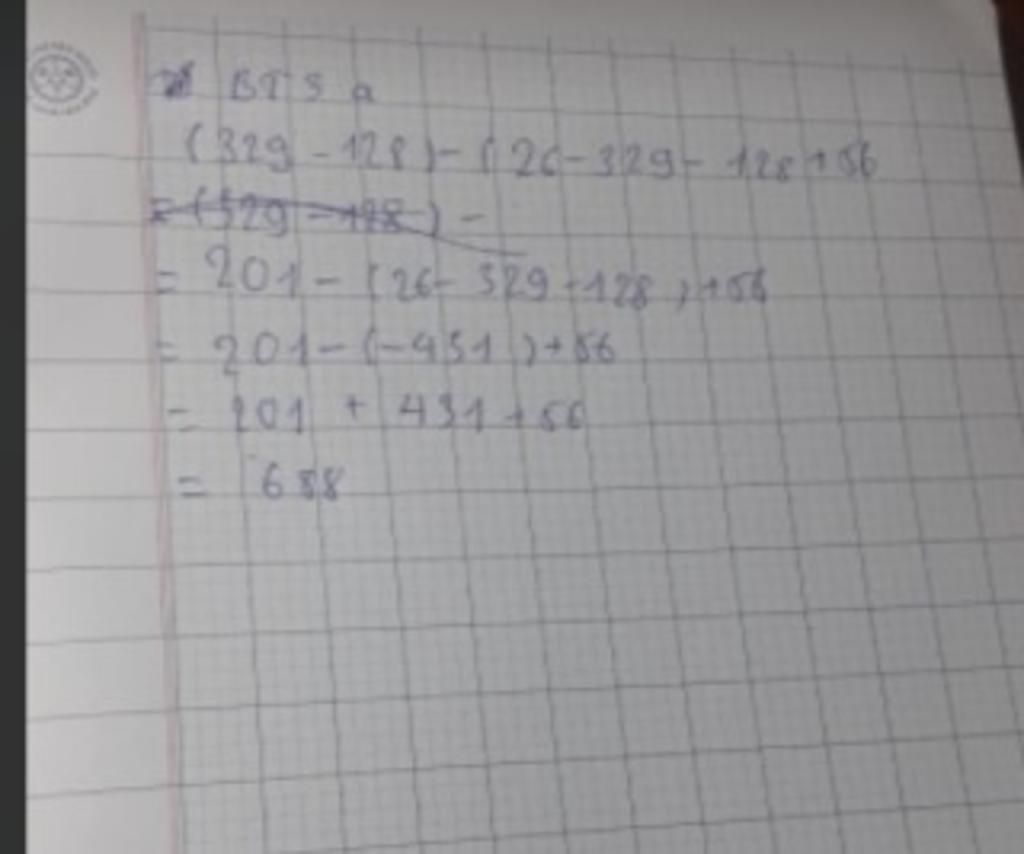 BT 5 a
(329 - 128) - (26 - 329 - 128 + 56
= (329 - 128) -
= 201 - (26 - 329 - 128) + 56
= 201 - (-431) + 56
= 201 + 431 + 56
= 688